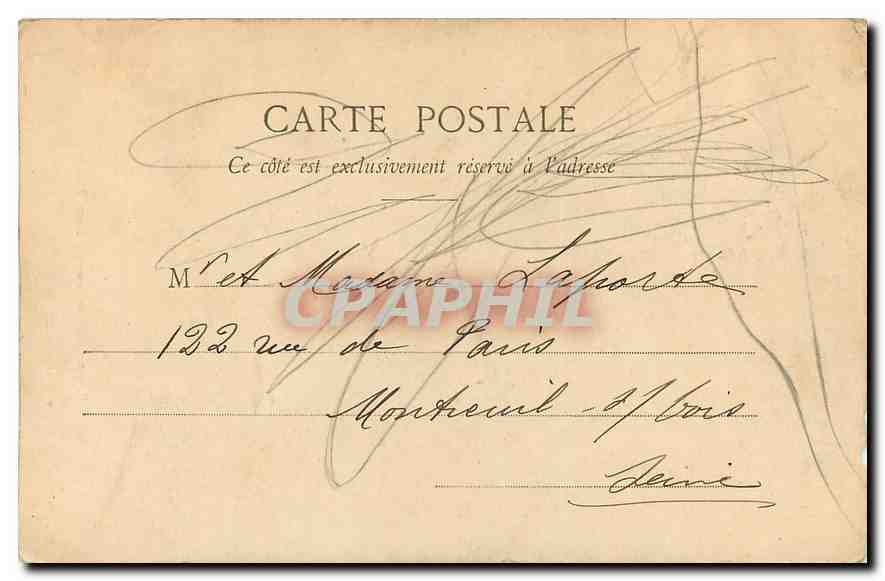 CARTE POSTALE
Ce côté est exclusivement réservé à l'adresse
Mr et Madame Laporte
CPAPHIL
122 rue de Paris
Montreuil s/ bois
Seine